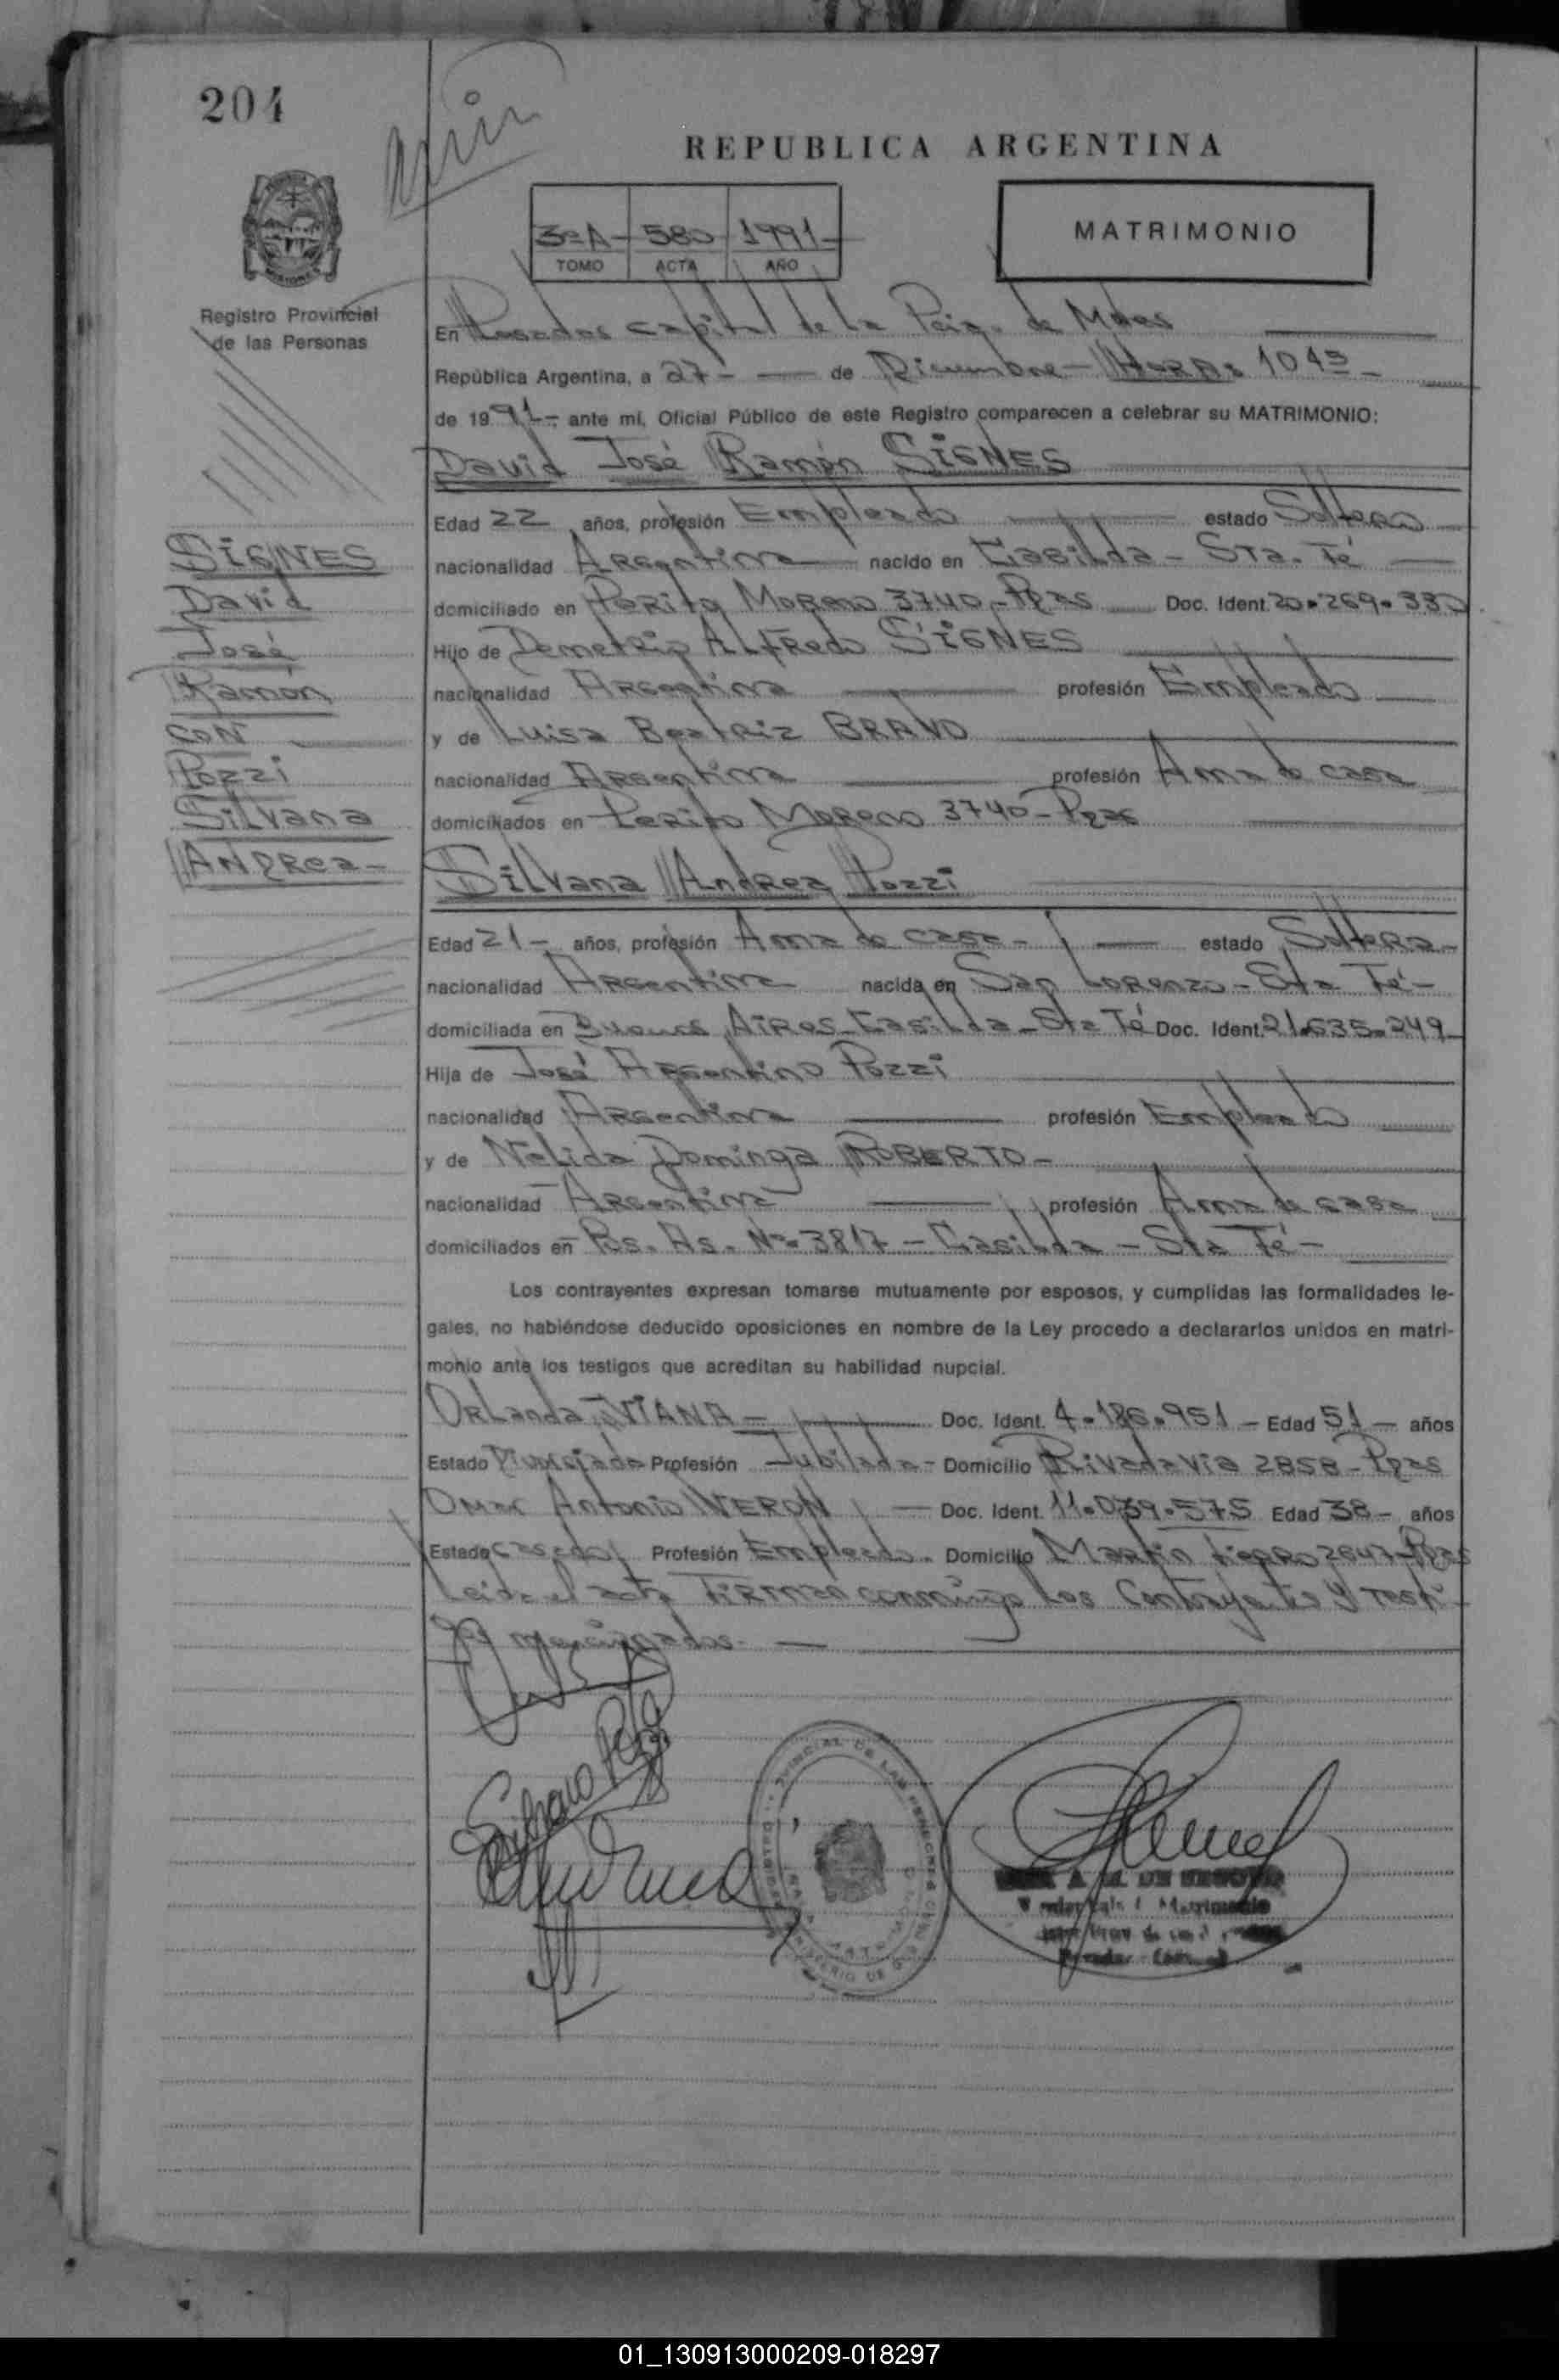 204
REPUBLICA ARGENTINA
3ºA- 580 1991-
TOMO ACTA AÑO
MATRIMONIO
Registro Provincial
de las Personas
En Posadas capital de la de
República Argentina, a 27- de Diciembre - Horas 10 45-
de 1991- ante mí, Oficial Público de este Registro comparecen a celebrar su MATRIMONIO:
David José Ramón SIGNES
Edad 22 años, profesión Empleado estado Soltero
nacionalidad Argentina nacido en Casilda - Sta. Fé
domiciliado en Perito Moreno 3740 - Doc. Ident. 20.269.330
Hijo de Demetrio Alfredo SIGNES
nacionalidad Argentina profesión Empleado
y de Luisa Beatriz BRAVO
nacionalidad Argentina profesión Ama de casa
domiciliados en Perito Moreno 3740 -
SIGNES
David
José
Ramón
CON
Pozzi
Silvana
Andrea-
Silvana Andrea Pozzi
Edad 21- años, profesión Ama de casa - estado Soltera-
nacionalidad Argentina nacida en San Lorenzo - Sta Fé-
domiciliada en Buenos Aires - Casilda - Sta Fé Doc. Ident. 21.635.249
Hija de José Argentino Pozzi
nacionalidad Argentina profesión Empleado
y de Nelida Dominga ROBERTO-
nacionalidad Argentina profesión Ama de casa
domiciliados en Bs. As. Nº 3817 - Casilda - Sta Fé-
Los contrayentes expresan tomarse mutuamente por esposos, y cumplidas las formalidades le-
gales, no habiéndose deducido oposiciones en nombre de la Ley procedo a declararlos unidos en matri-
monio ante los testigos que acreditan su habilidad nupcial.
VIANA - Doc. Ident. 4.186.951 - Edad 51 - años
Estado Profesión Domicilio Rivadavia 2858 -
Omar Antonio VERON - Doc. Ident. 11.039.575 Edad 38 - años
Estado casado Profesión Empleado. Domicilio Martin Fierro
Leida el acta firman conmigo los Contrayentes y testi-
gos mencionados. -
01_130913000209-018297